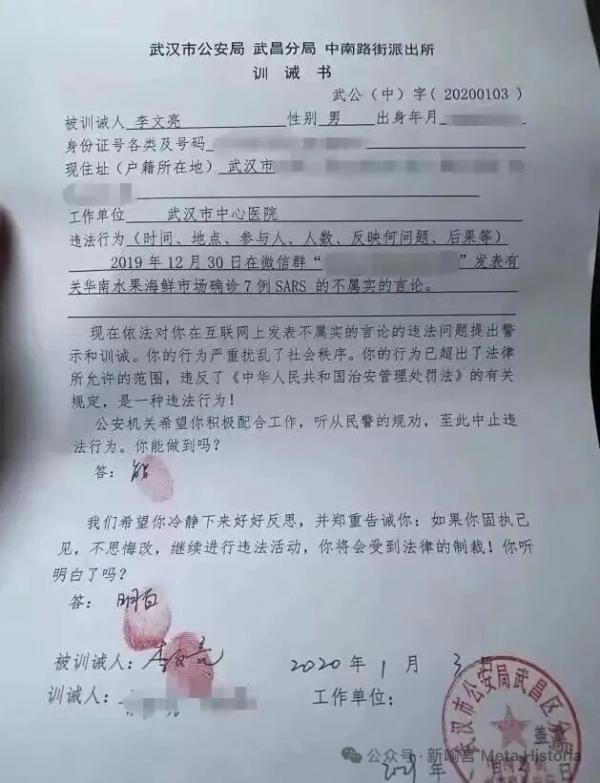 武汉市公安局 武昌分局 中南路街派出所
训 诫 书
武公（中）字（20200103）
被训诫人 李文亮 性别 男 出身年月
身份证号各类及号码
现住址（户籍所在地）武汉市
工作单位 武汉市中心医院
违法行为（时间、地点、参与人、人数、反映何问题、后果等）
2019年12月30日在微信群“ ”发表有
关华南水果海鲜市场确诊7例SARS的不属实的言论。
现在依法对你在互联网上发表不属实的言论的违法问题提出警
示和训诫。你的行为严重扰乱了社会秩序。你的行为已超出了法律
所允许的范围，违反了《中华人民共和国治安管理处罚法》的有关
规定，是一种违法行为！
公安机关希望你积极配合工作，听从民警的规劝，至此中止违
法行为。你能做到吗？
答： 能
我们希望你冷静下来好好反思，并郑重告诫你：如果你固执己
见，不思悔改，继续进行违法活动，你将会受到法律的制裁！你听
明白了吗？
答： 明白
被训诫人：李文亮 2020年1月3日
训诫人： 工作单位：
武汉市公安局武昌区分局
盖章
公众号·新喻言 Meta Historia